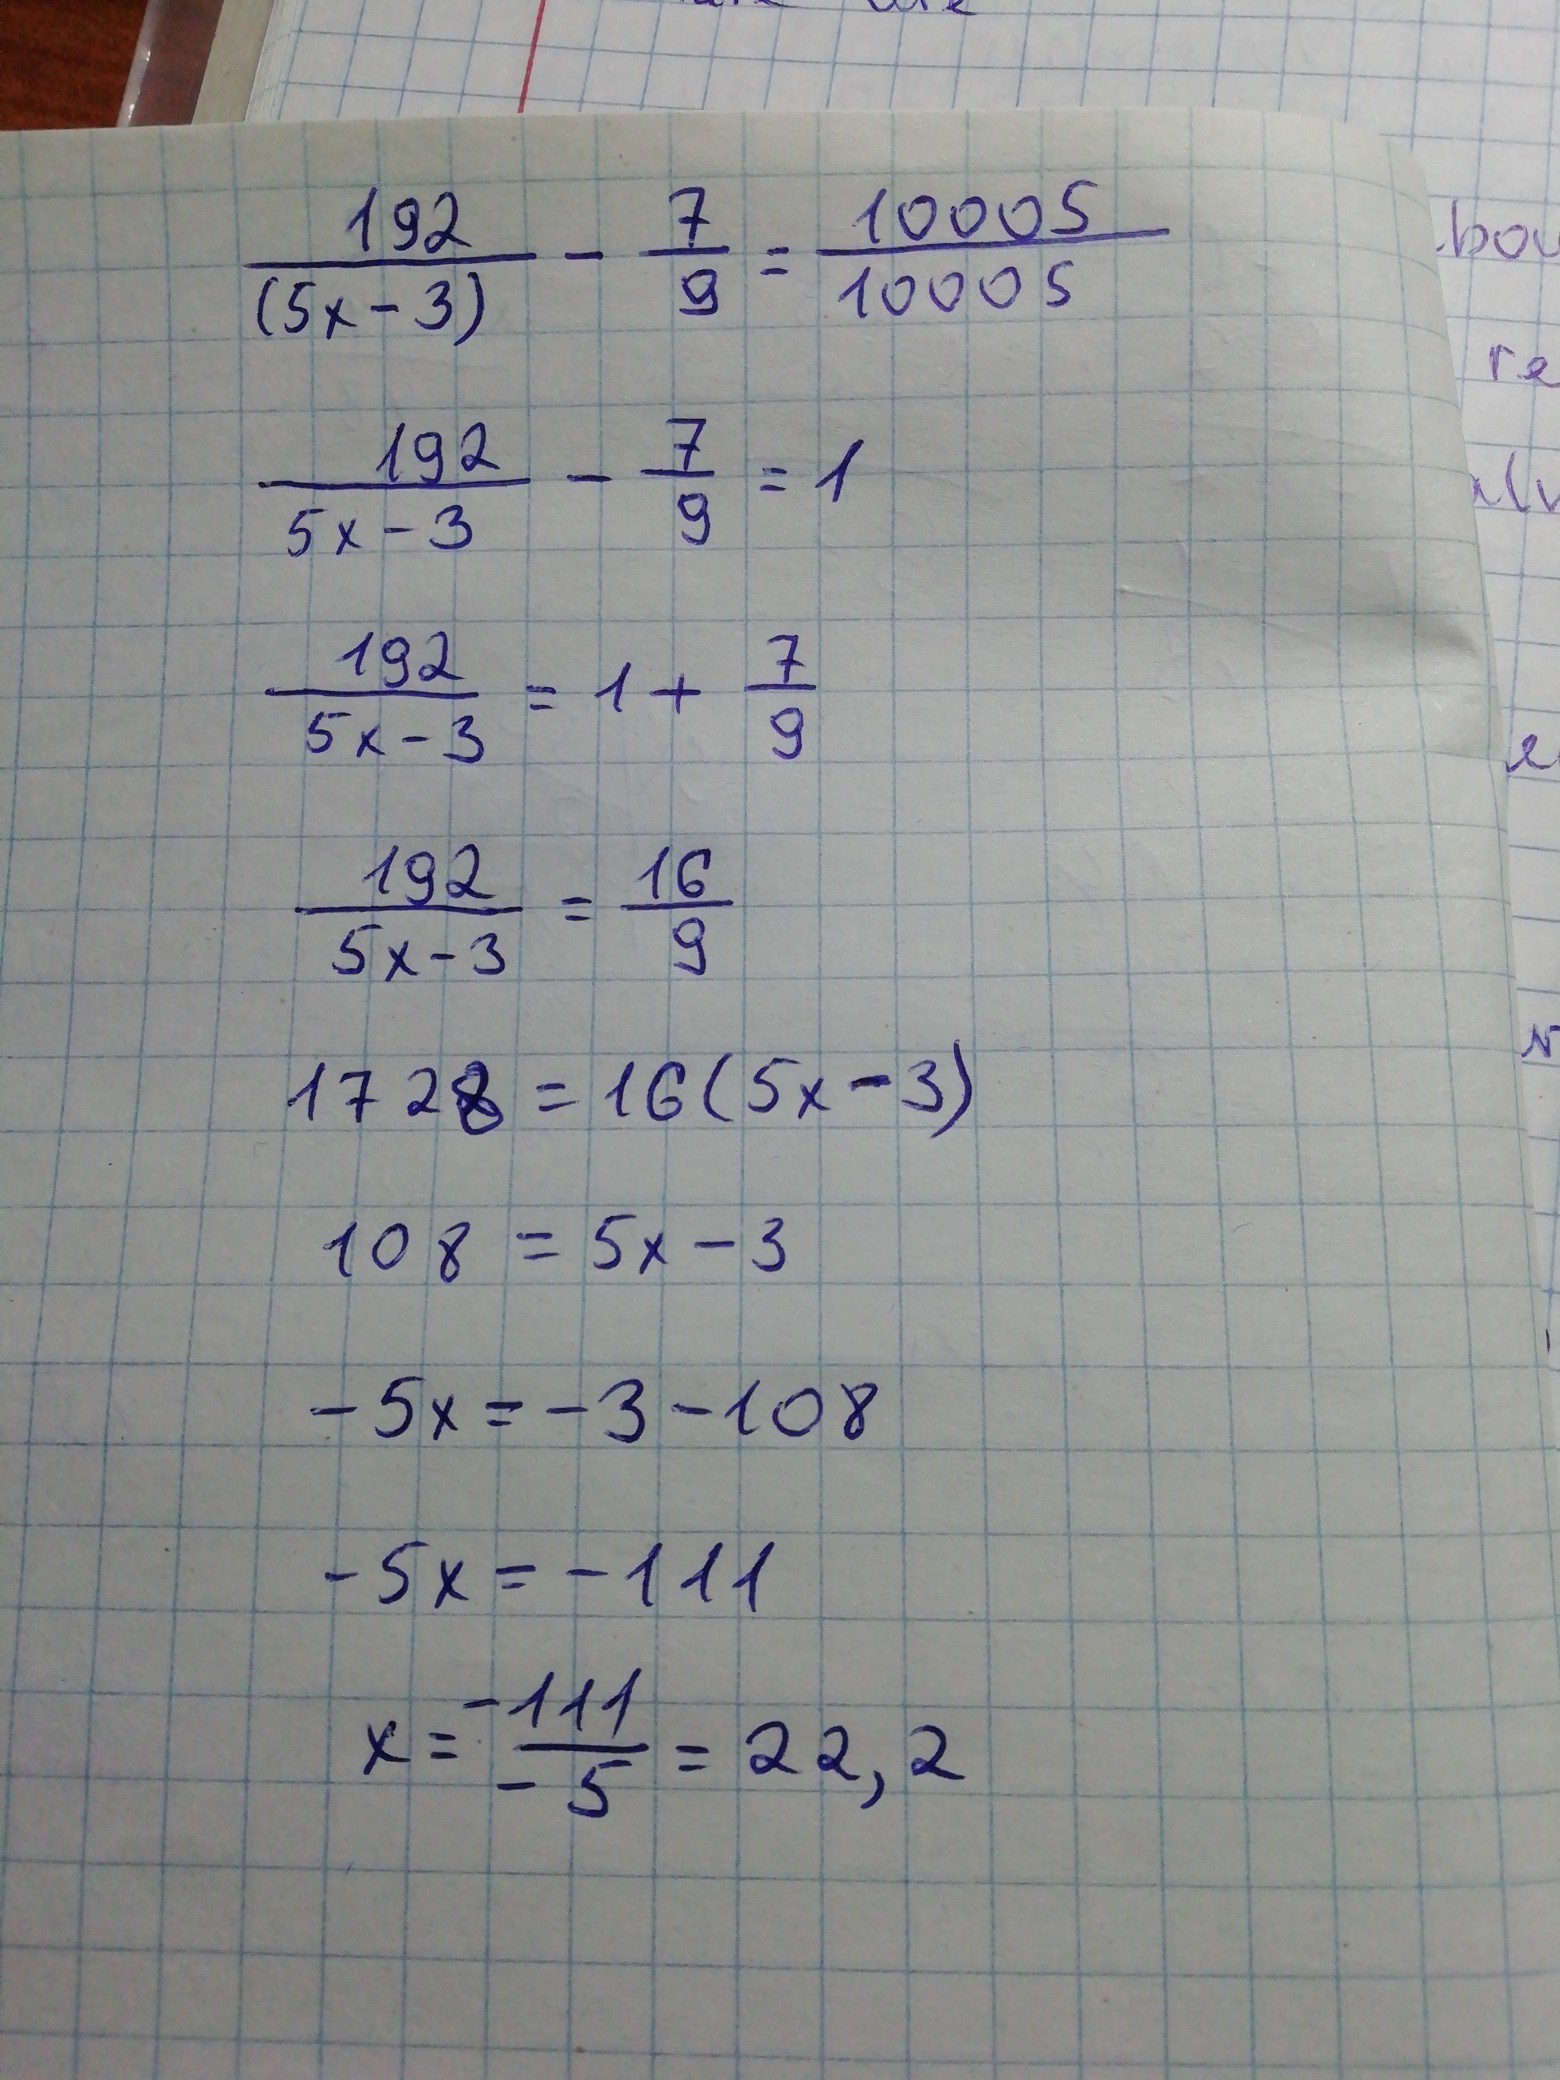 192/(5x-3) - 7/9 = 10005/10005
192/5x-3 - 7/9 = 1
192/5x-3 = 1 + 7/9
192/5x-3 = 16/9
1728 = 16(5x-3)
108 = 5x-3
-5x = -3-108
-5x = -111
x = -111/-5 = 22,2